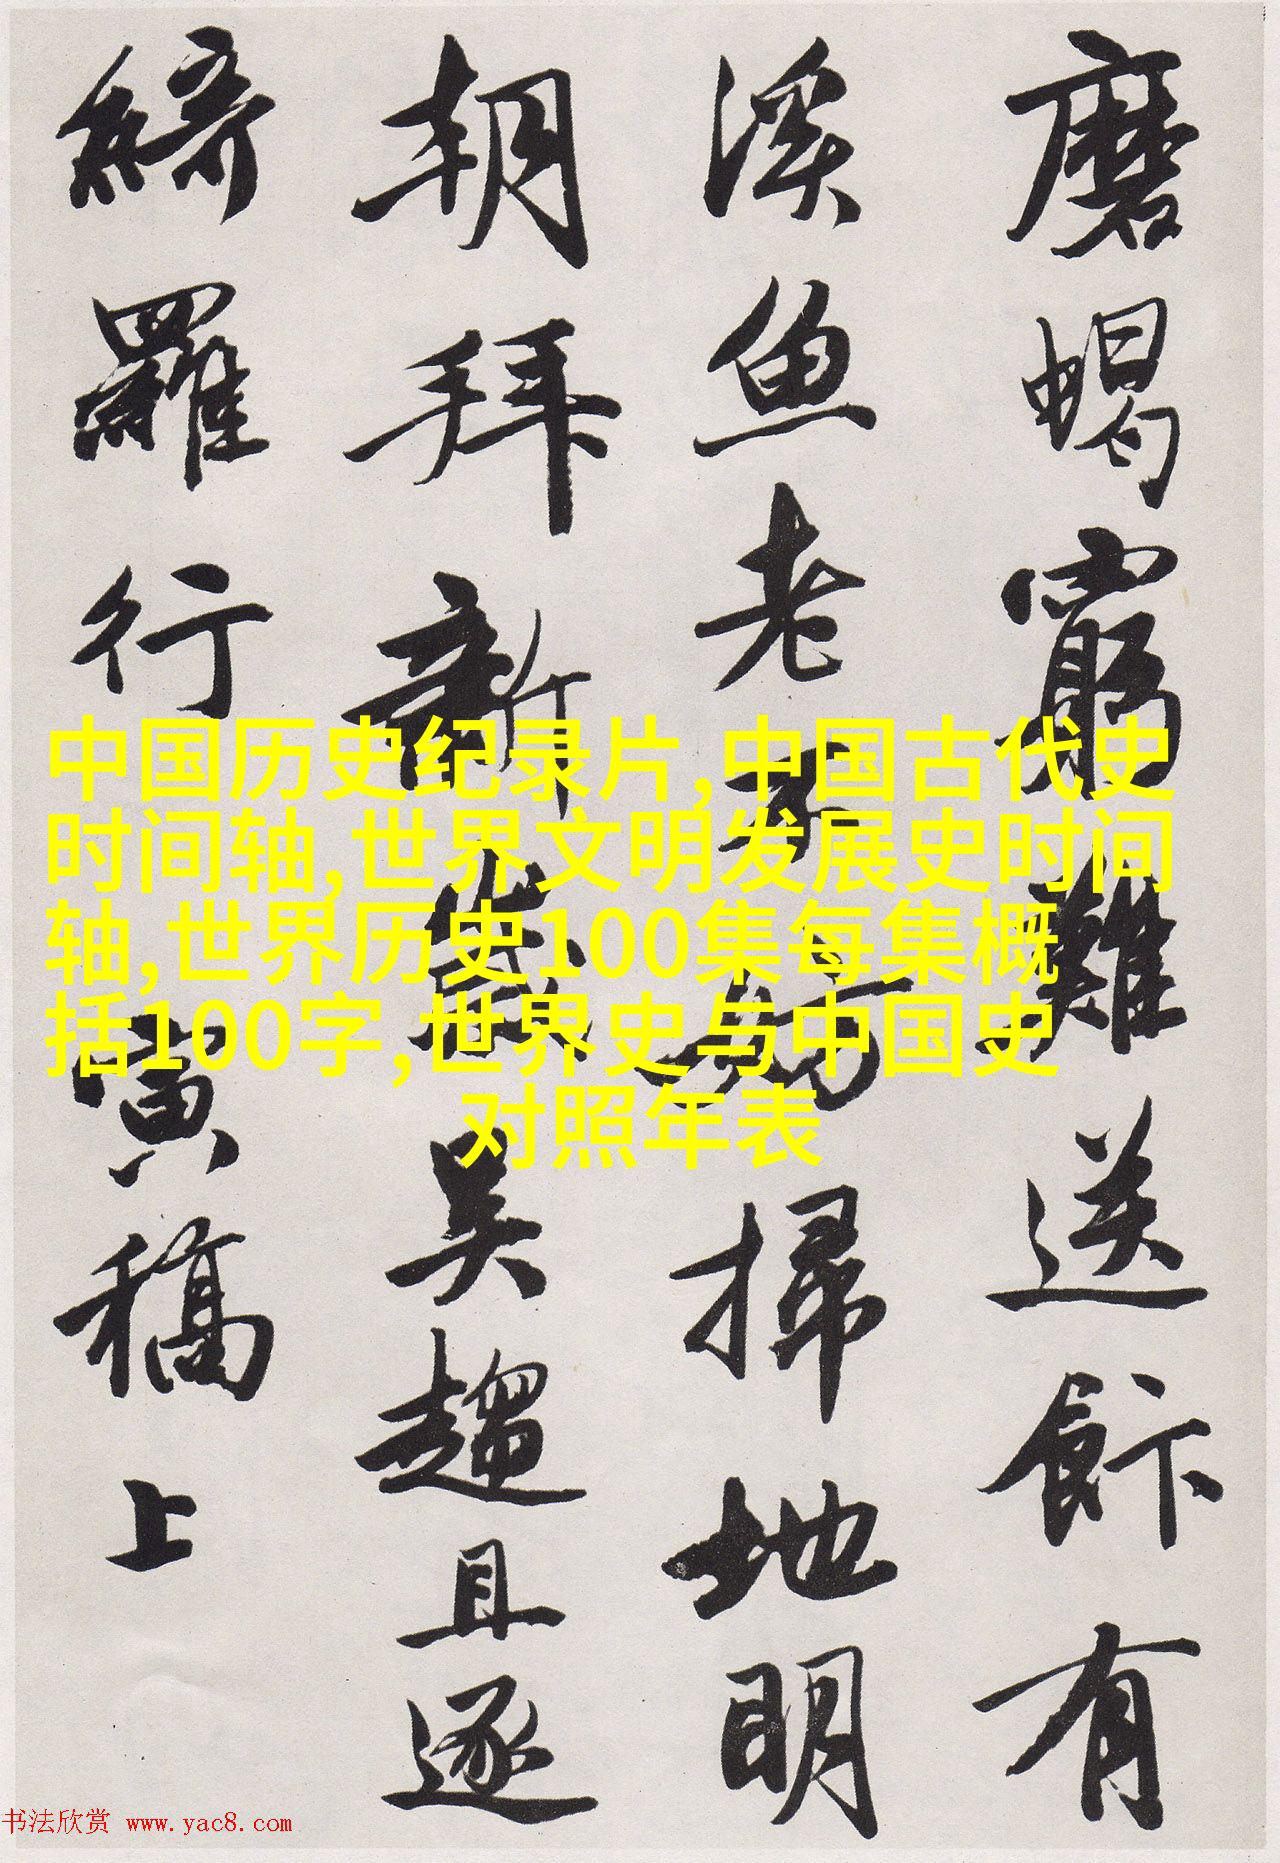 磨蝎窮難送餅有
溪魚老不場掃地明
朝拜新歲吳趨且逐
綺羅行 寅稿上
中国历史纪录片,中国古代史
时间轴,世界文明发展史时间
轴,世界历史100集每集概
括100字,世界史与中国史
对照年表
书法欣赏 www.yac8.com